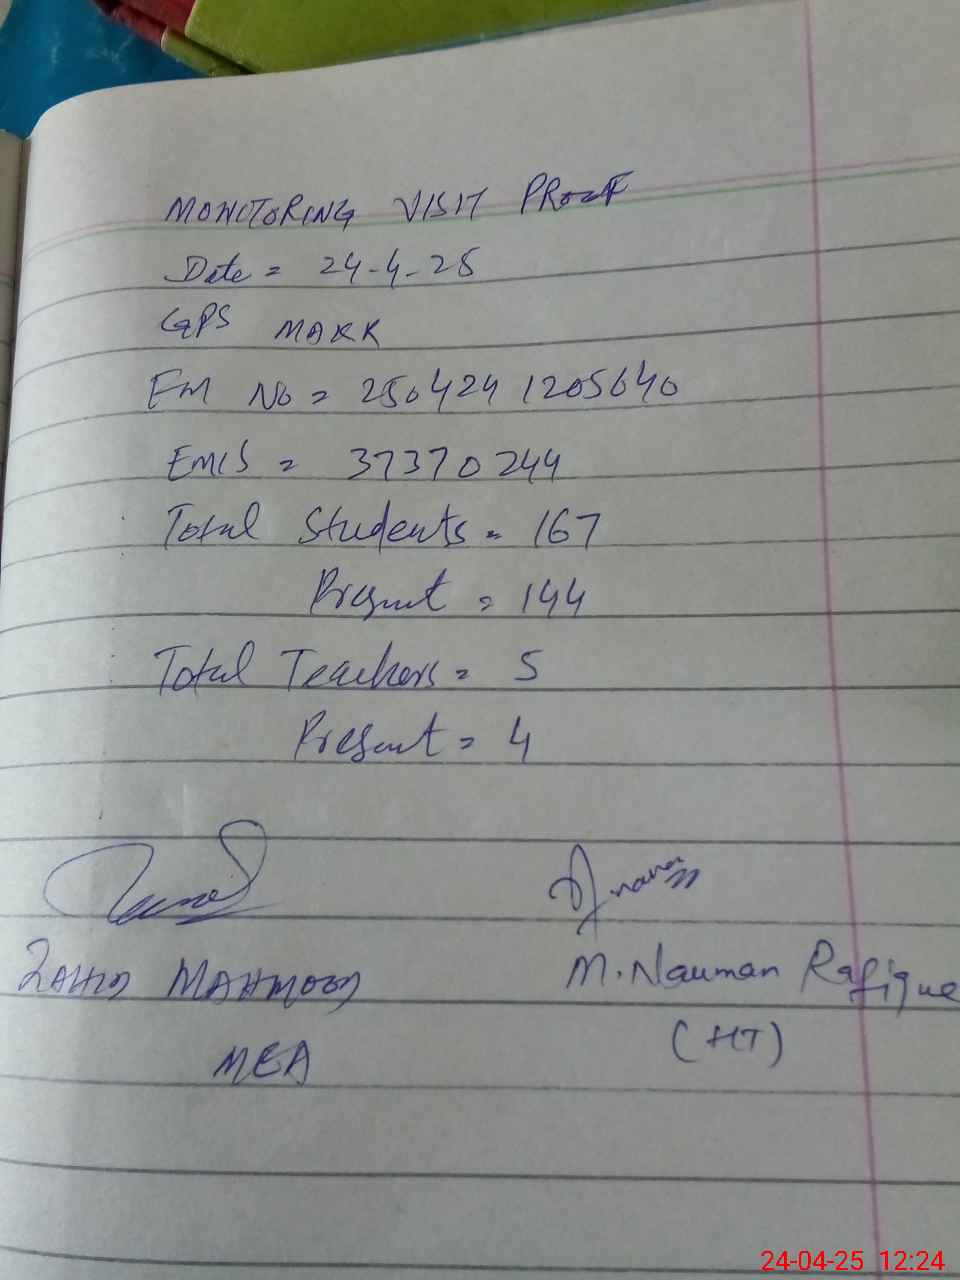 MONITORING VISIT PROOF
Date = 24-4-25
GPS MARK
EM No = 2504241205640
EMIS = 37370244
Total Students = 167
Present = 144
Total Teachers = 5
Present = 4
ZAHID MAHMOOD
M. Nauman Rafique
MEA
(HT)
24-04-25 12:24